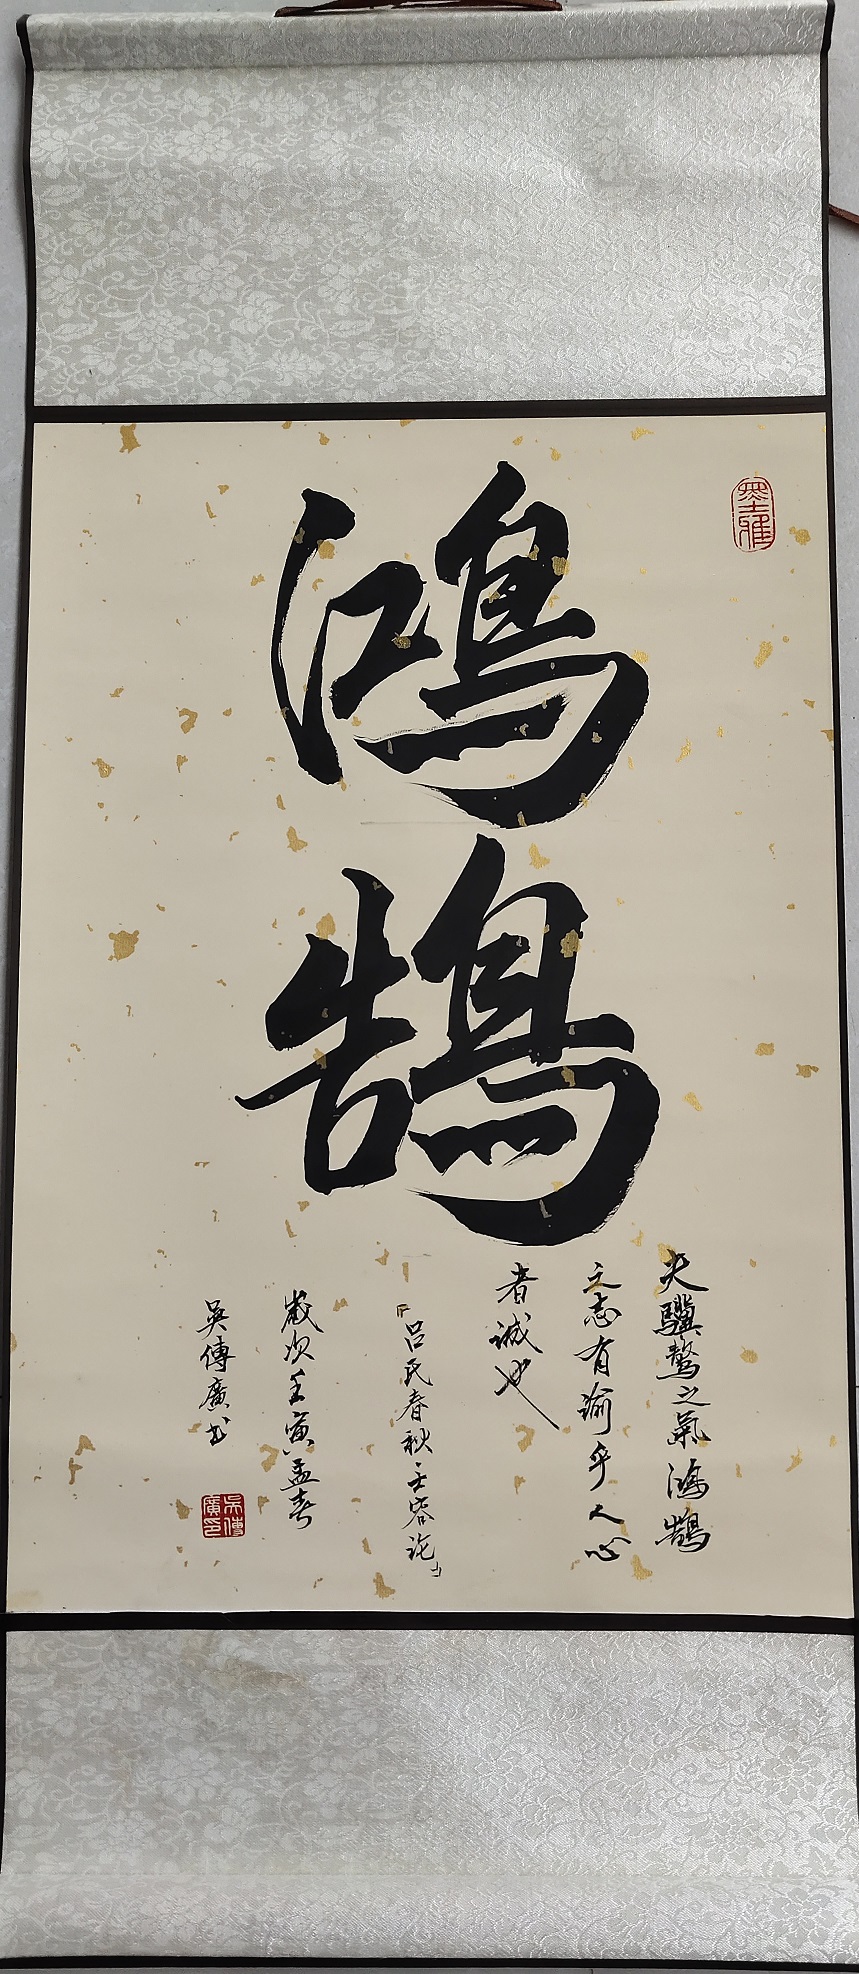 鴻鵠
夫驥驁之氣鴻鵠
之志有諭乎人心
者誠也
「呂氏春秋·士容论」
歲次壬寅孟春
吳傳廣书
吳傳廣印